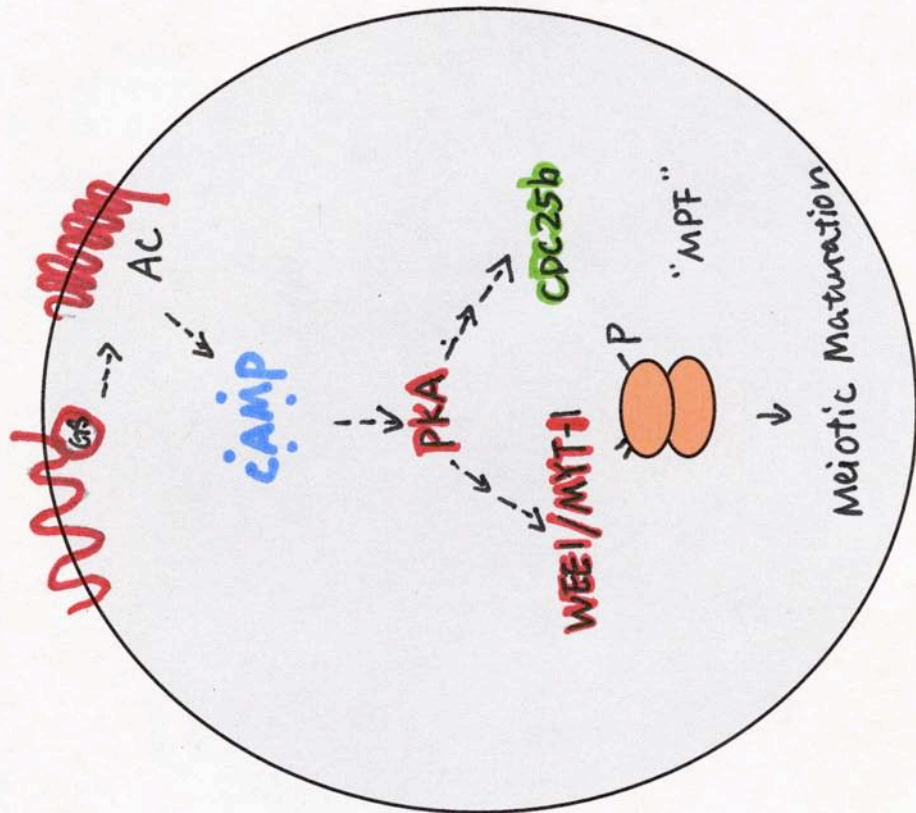 GS
AC
cAMP
PKA
WEE1/MYT-1
CDC25b
P
"MPF"
Meiotic Maturation